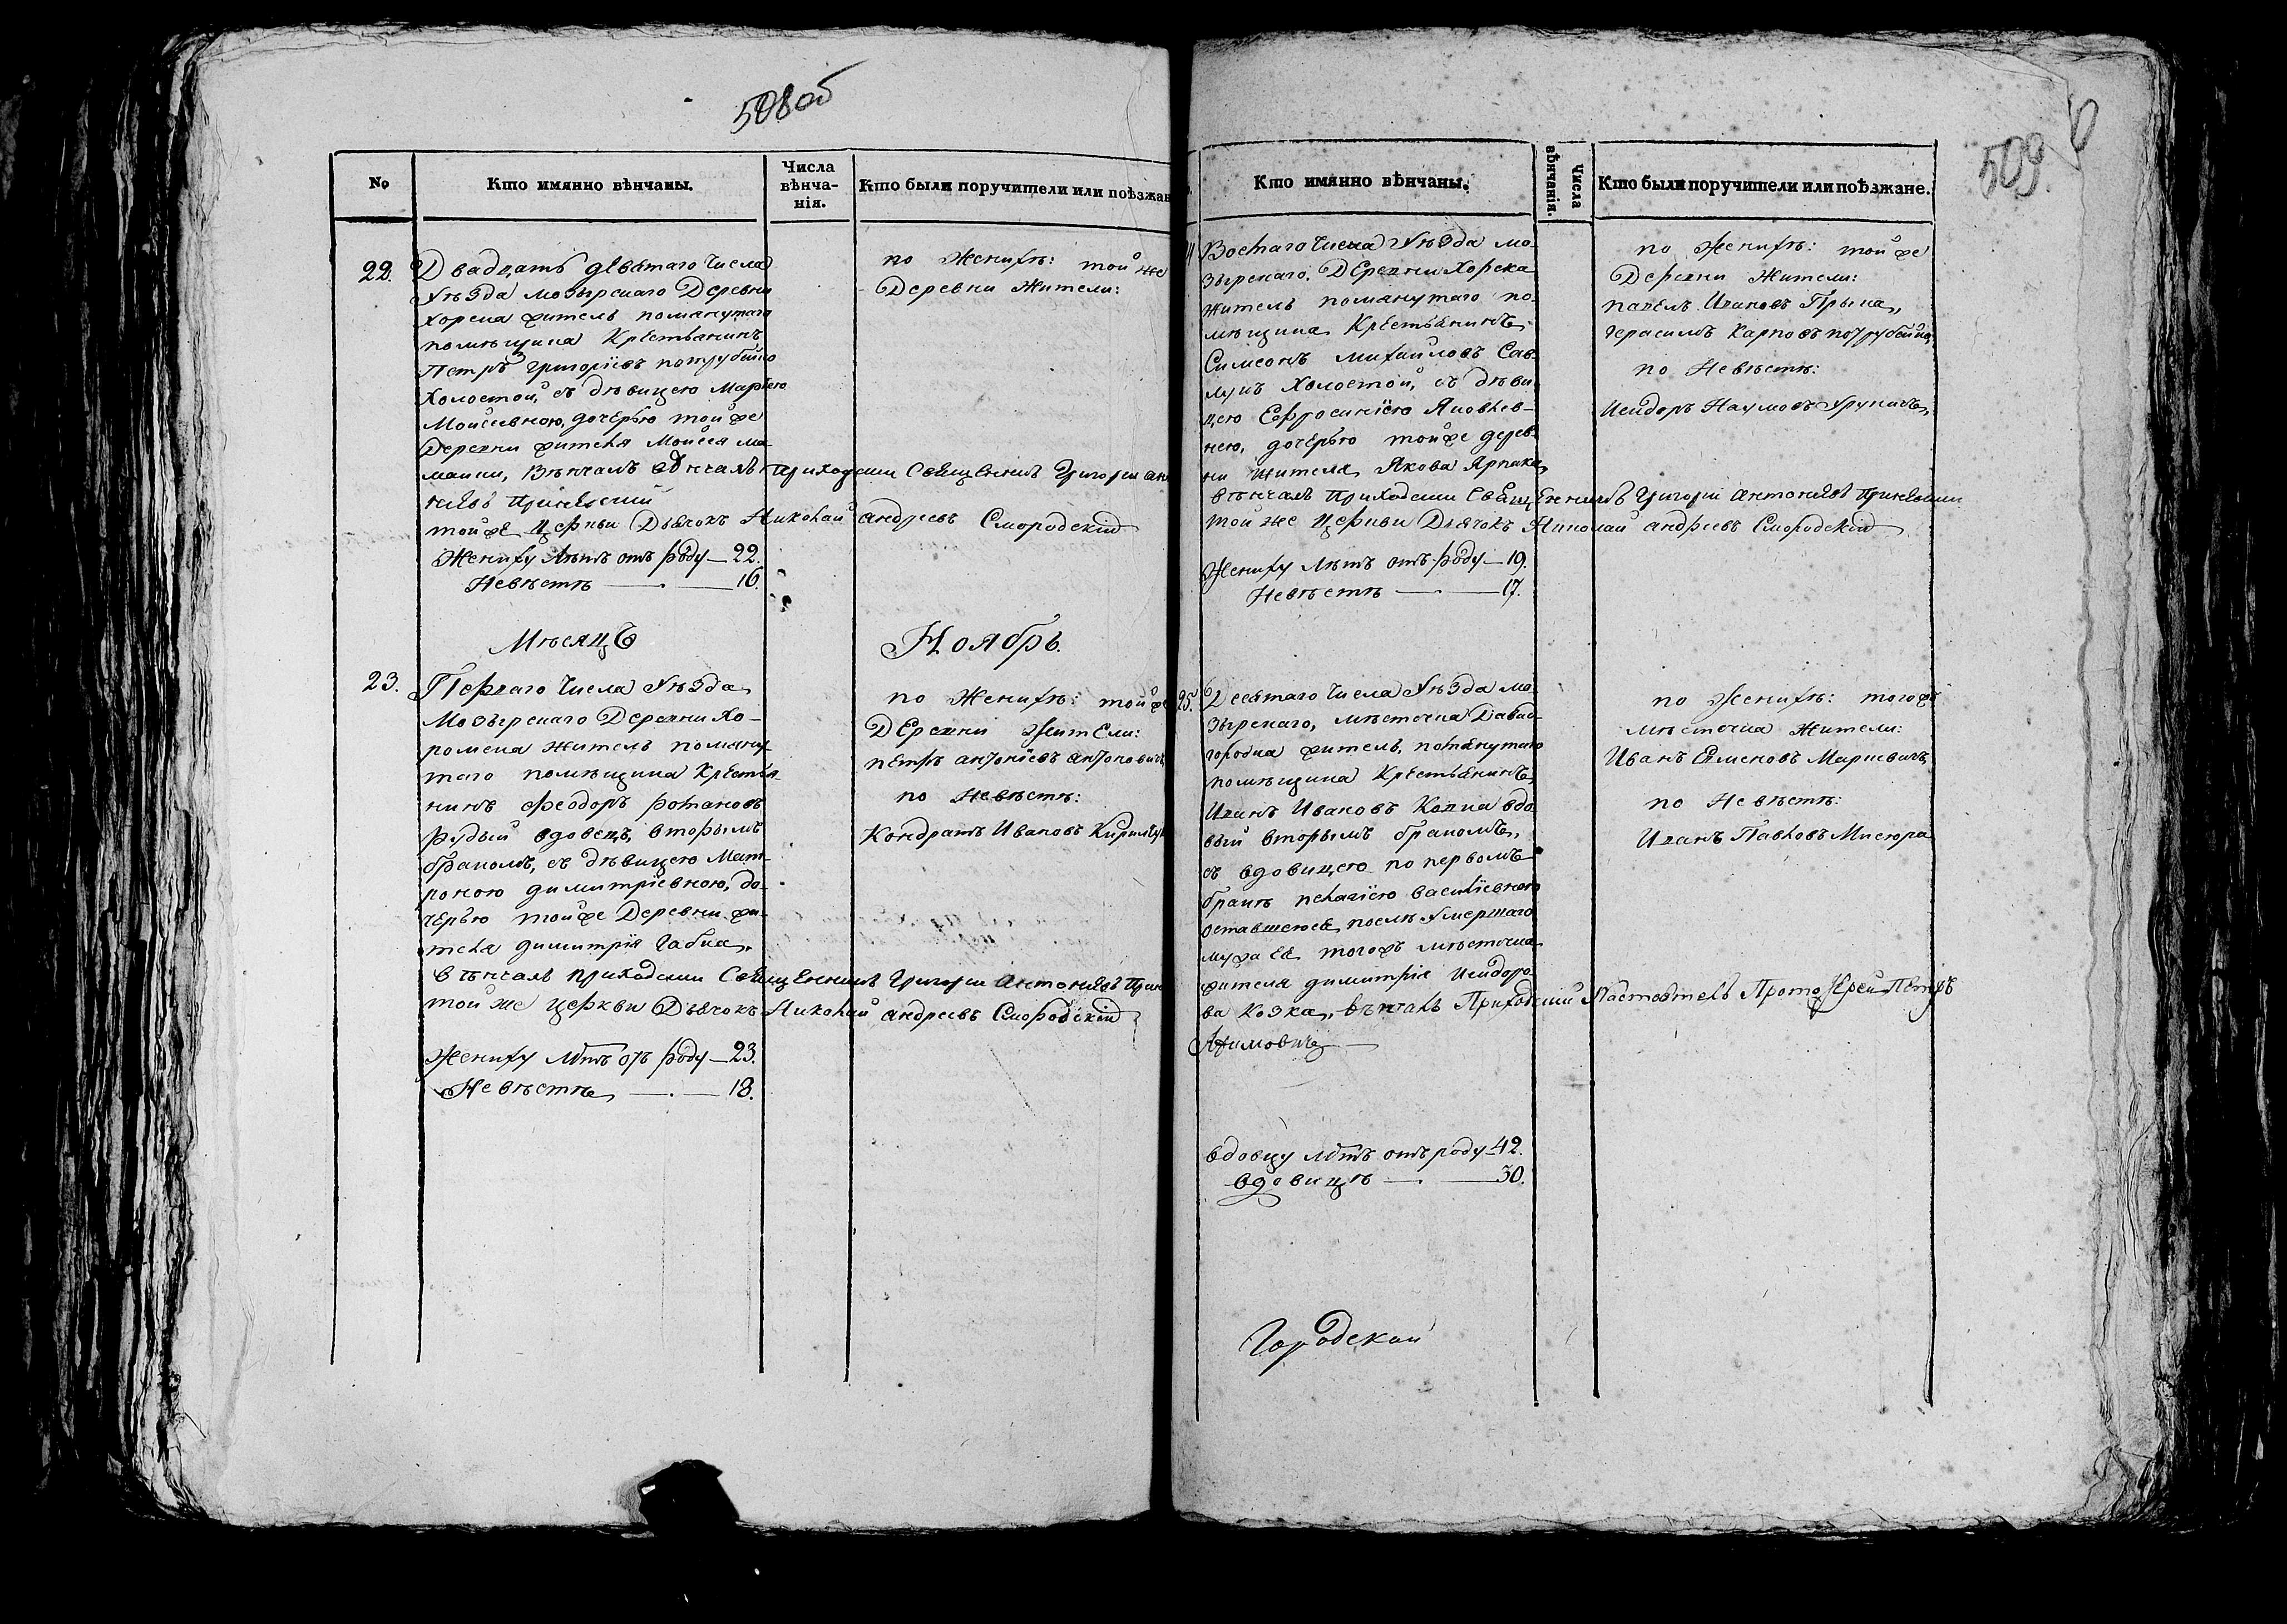 508 об
№
Кто имянно вѣнчаны.
Числа
вѣнча-
нія.
Кто были поручители или поѣзжан
22.
Двадцать девятаго Числа
Уѣзда Мозырскаго Деревни
Хорска житель помянутаго
помѣщика Крестьянинъ
Петръ Григоріевъ
Холостой, съ дѣвицею Маріею
Моисеевною, дочерью той же
Деревни жителя Моисея Ма-
Вѣнчалъ приходскій Священникъ Григорій Ан
той же Церкви Дьячокъ Николай Андреевъ Смородскій
Жениху лѣтъ отъ роду — 22.
Невѣстѣ — 16.
по Женихѣ: той же
Деревни Жители:
Мѣсяцъ
Ноябрь.
23.
Перваго Числа Уѣзда
Мозырскаго Деревни Хо-
ромска житель помяну-
таго помѣщика Крестья-
нинъ Феодоръ Романовъ
Рудый вдовецъ, вторымъ
бракомъ, съ дѣвицею Мат-
роною Димитріевною, до-
черью той же Деревни жи-
теля Димитрія Габка,
вѣнчалъ приходскій Священникъ Григорій Антоніевъ
той же Церкви Дьячокъ Николай Андреевъ Смородскій
Жениху лѣтъ отъ роду — 23.
Невѣстѣ — 18.
по Женихѣ: той же
Деревни Жители:
Петръ Антоніевъ Антоновичъ
по Невѣстѣ:
Кондратъ Ивановъ
509
Кто имянно вѣнчаны.
Числа
вѣнчанія.
Кто были поручители или поѣзжане.
Восмаго Числа Уѣзда Мо-
зырскаго, Деревни Хорска
житель помянутаго по-
мѣщика Крестьянинъ
Симеонъ Михайловъ Сав-
лукъ Холостой, съ дѣви-
цею Ефросиніею Яковлев-
ною, дочерью той же дерев-
ни жителя Якова
вѣнчалъ Приходскій Священникъ Григорій Антоніевъ
той же Церкви Дьячокъ Николай Андреевъ Смородскій
Жениху лѣтъ отъ роду — 19.
Невѣстѣ — 17.
по Женихѣ: той же
Деревни Жители:
Павелъ Ивановъ
Герасимъ Карповъ
по Невѣстѣ:
Исидоръ Наумовъ
25.
Десятаго Числа Уѣзда Мо-
зырскаго, мѣстечка Давид-
городка житель, помянутаго
помѣщика Крестьянинъ
Иванъ Ивановъ Копка вдо-
вый вторымъ бракомъ,
съ вдовицею по первомъ
бракѣ Пелагіею Васильевною
оставшеюся послѣ умершаго
мужа ея того жъ мѣстечка
жителя Димитрія Исидоро-
ва Козка, вѣнчалъ Приходскій Настоятель Протоіерей Петръ
вдовцу лѣтъ отъ роду 42.
вдовицѣ — 30.
по Женихѣ: того жъ
мѣстечка Жители:
Иванъ Семеновъ Маркевичъ
по Невѣстѣ:
Иванъ Павловъ Мисюра
Городской